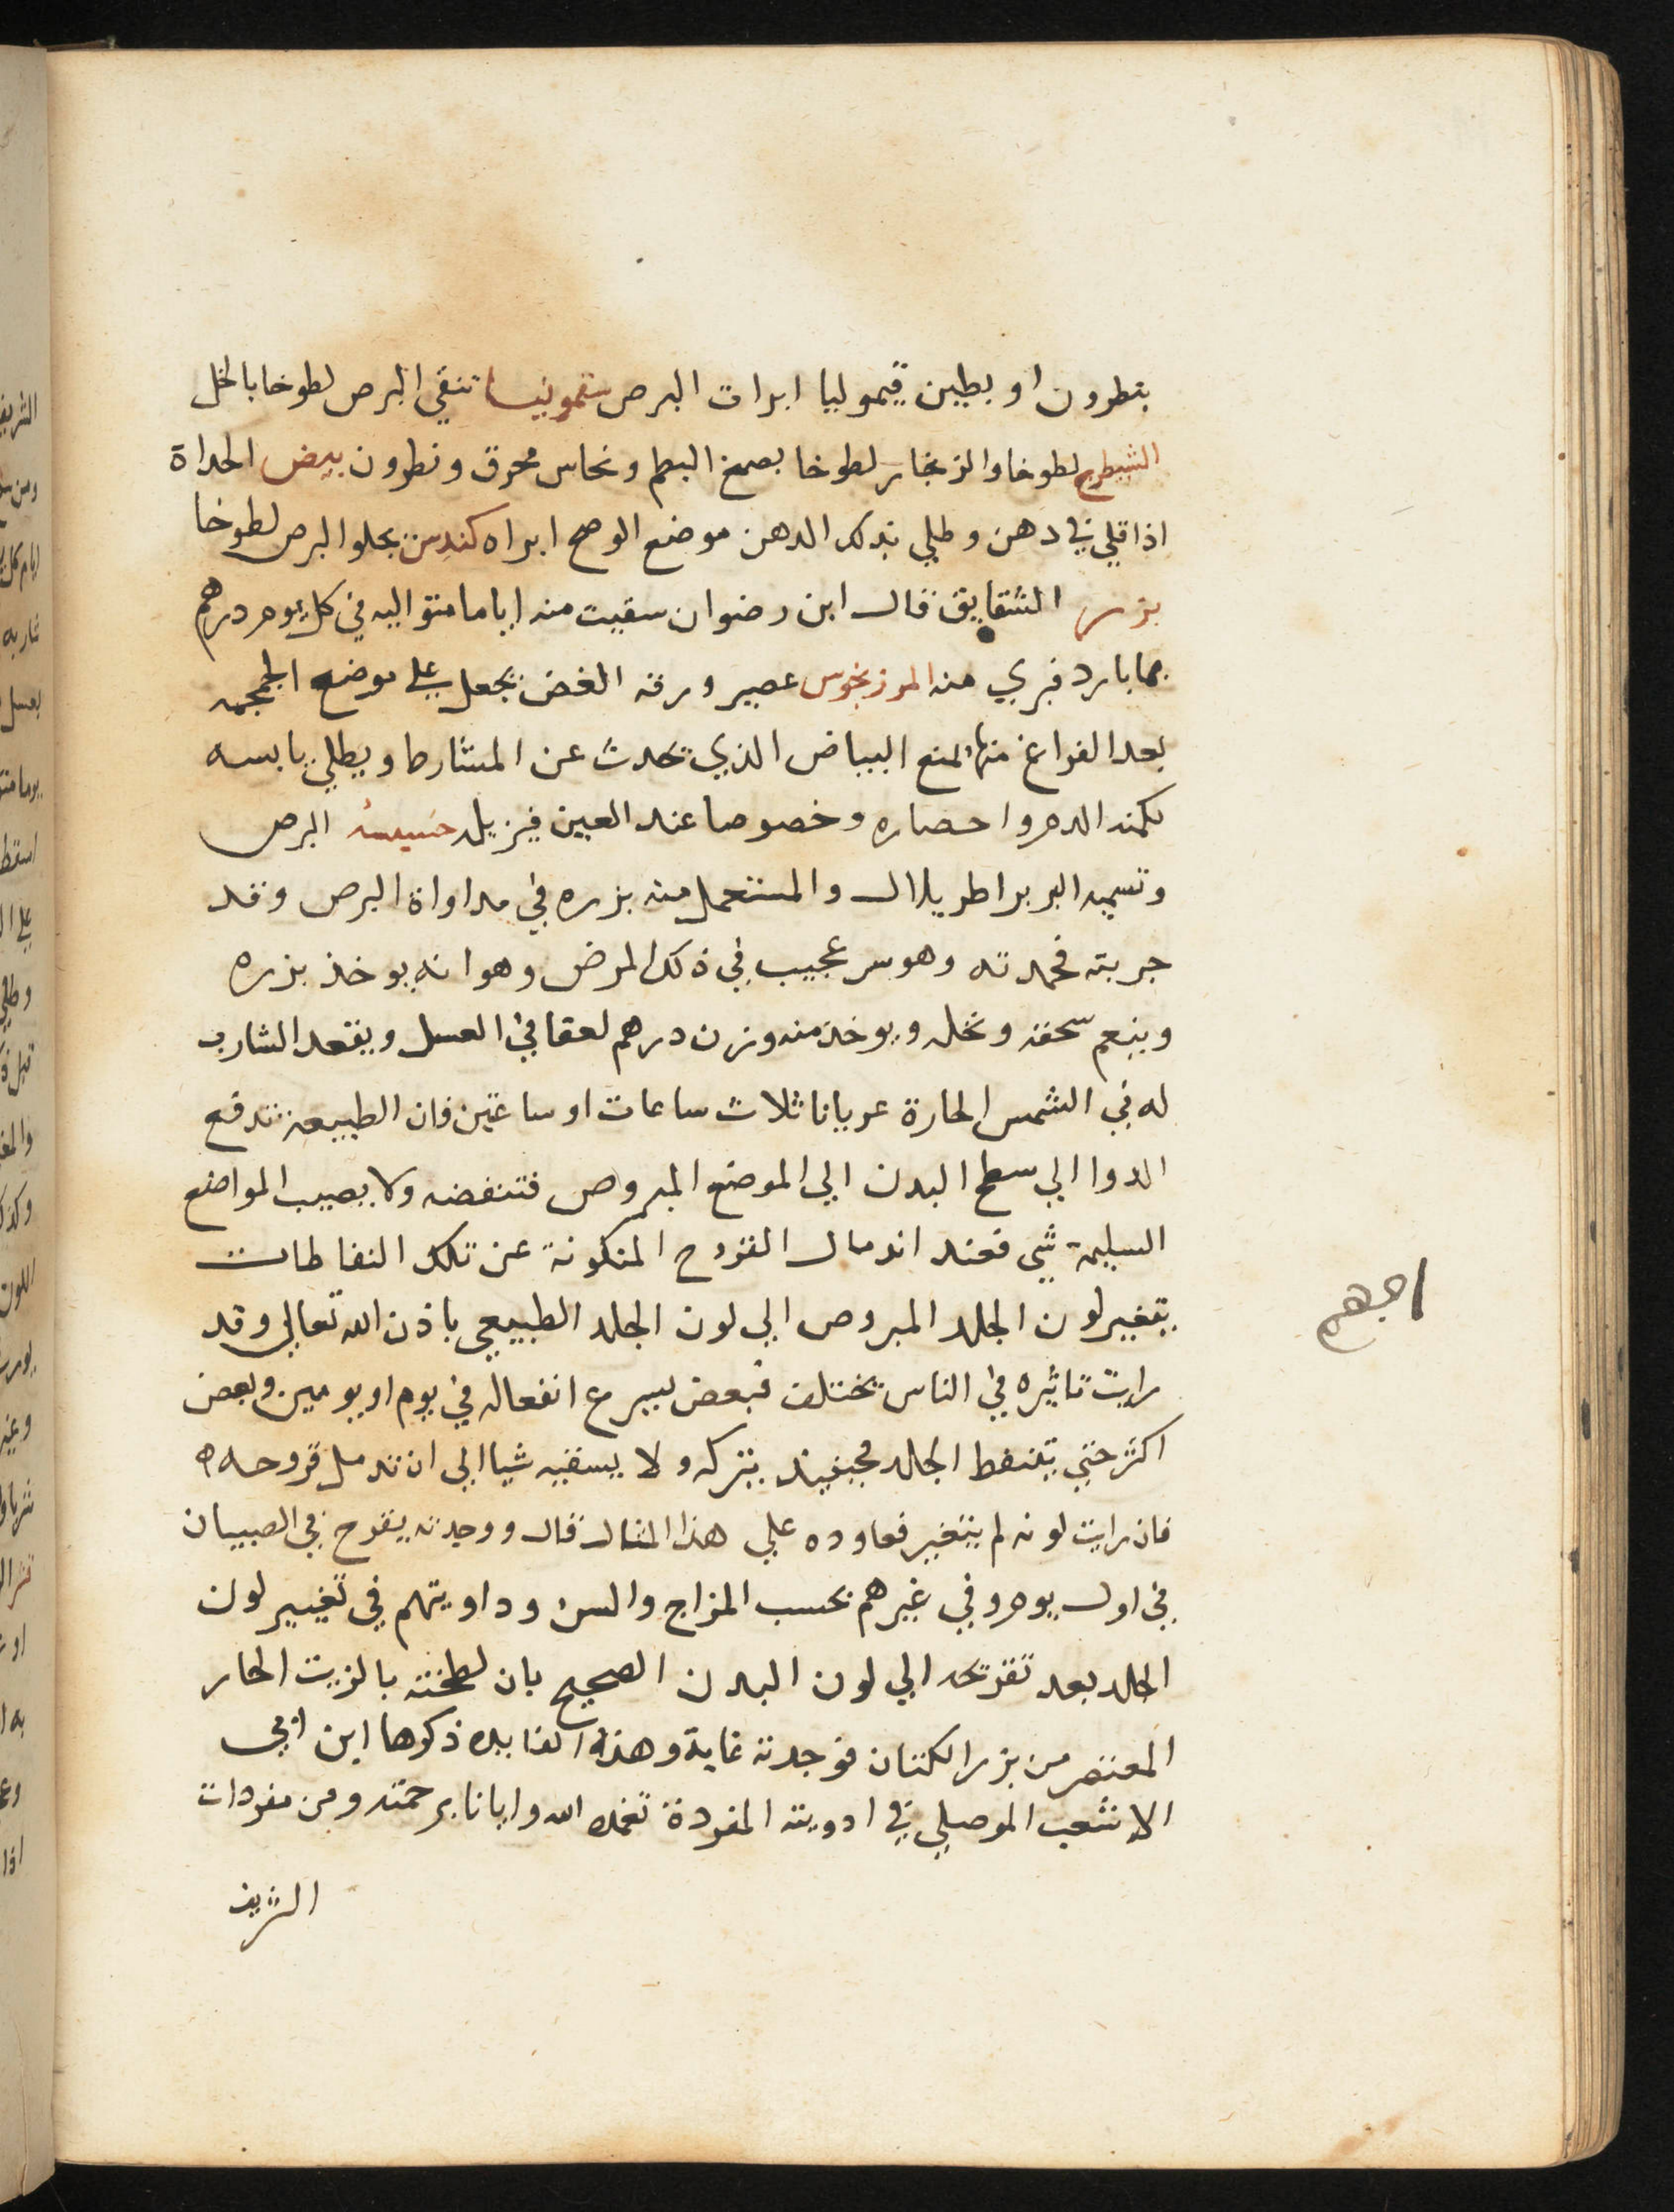 بنطرون او بطين قيموليا ابرات البرص سقمونيا تنقي البرص لطوخا بالخل
الشيطرج لطوخا والزنجار لطوخا بصمغ البطم ونحاس محرق ونطرون بيض الحداة
اذا قلي في دهن وطلي بذلك الدهن موضع الوضح ابراه كندس يجلو البرص لطوخا
بزر الشقايق قال ابن رضوان سقيت منه اياما متواليه في كل يوم درهم
بما بارد فبري منه المرزنجوس عصير ورقه الغض يجعل على موضع المحجمه
بعد الفراغ منها لمنع البياض الذي تحدث عن المشارط ويطلي يابسه
لكمنه الدم واحصاره وخصوصا عند العين فيزيله حشيشة البرص
وتسميه البربر اطريلال والمستعمل منه بزره في مداواة البرص وقد
جربته فحمدته وهو سر عجيب في ذلك المرض وهو انه يوخذ بزره
وينعم سحقه ونخله ويوخذ منه وزن درهم لعقا في العسل ويقعد الشارب
له في الشمس الحارة عريانا ثلاث ساعات او ساعتين فان الطبيعة تدفع
الدوا الي سطح البدن الي الموضع المبروص فتنفضه ولا يصيب المواضع
السليمة شي فعند اندمال القروح المتكونة عن تلك النفاطات
يتغير لون الجلد المبروص الي لون الجلد الطبيعي باذن الله تعالي وقد
رايت تاثيره في الناس يختلف فبعض يسرع انفعاله في يوم او يومين وبعض
اكثر حتي يتنفط الجلد فحينيذ يتركه ولا يسقيه شيا الي ان تندمل قروحه
فان رايت لونه لم يتغير فعاوده علي هذا المثال قال ووجدته يقرح في الصبيان
في اول يوم وفي غيرهم بحسب المزاج والسن وداويتهم في تغيير لون
الجلد بعد تقرحه الي لون البدن الصحيح بان لطخته بالزيت الحار
المعتصر من بزر الكتان فوجدته غاية وهذه الفايده ذكرها ابن ابي
الاشعب الموصلي في ادويته المفردة تغمده الله وايانا برحمته ومن مفردات
الشريف